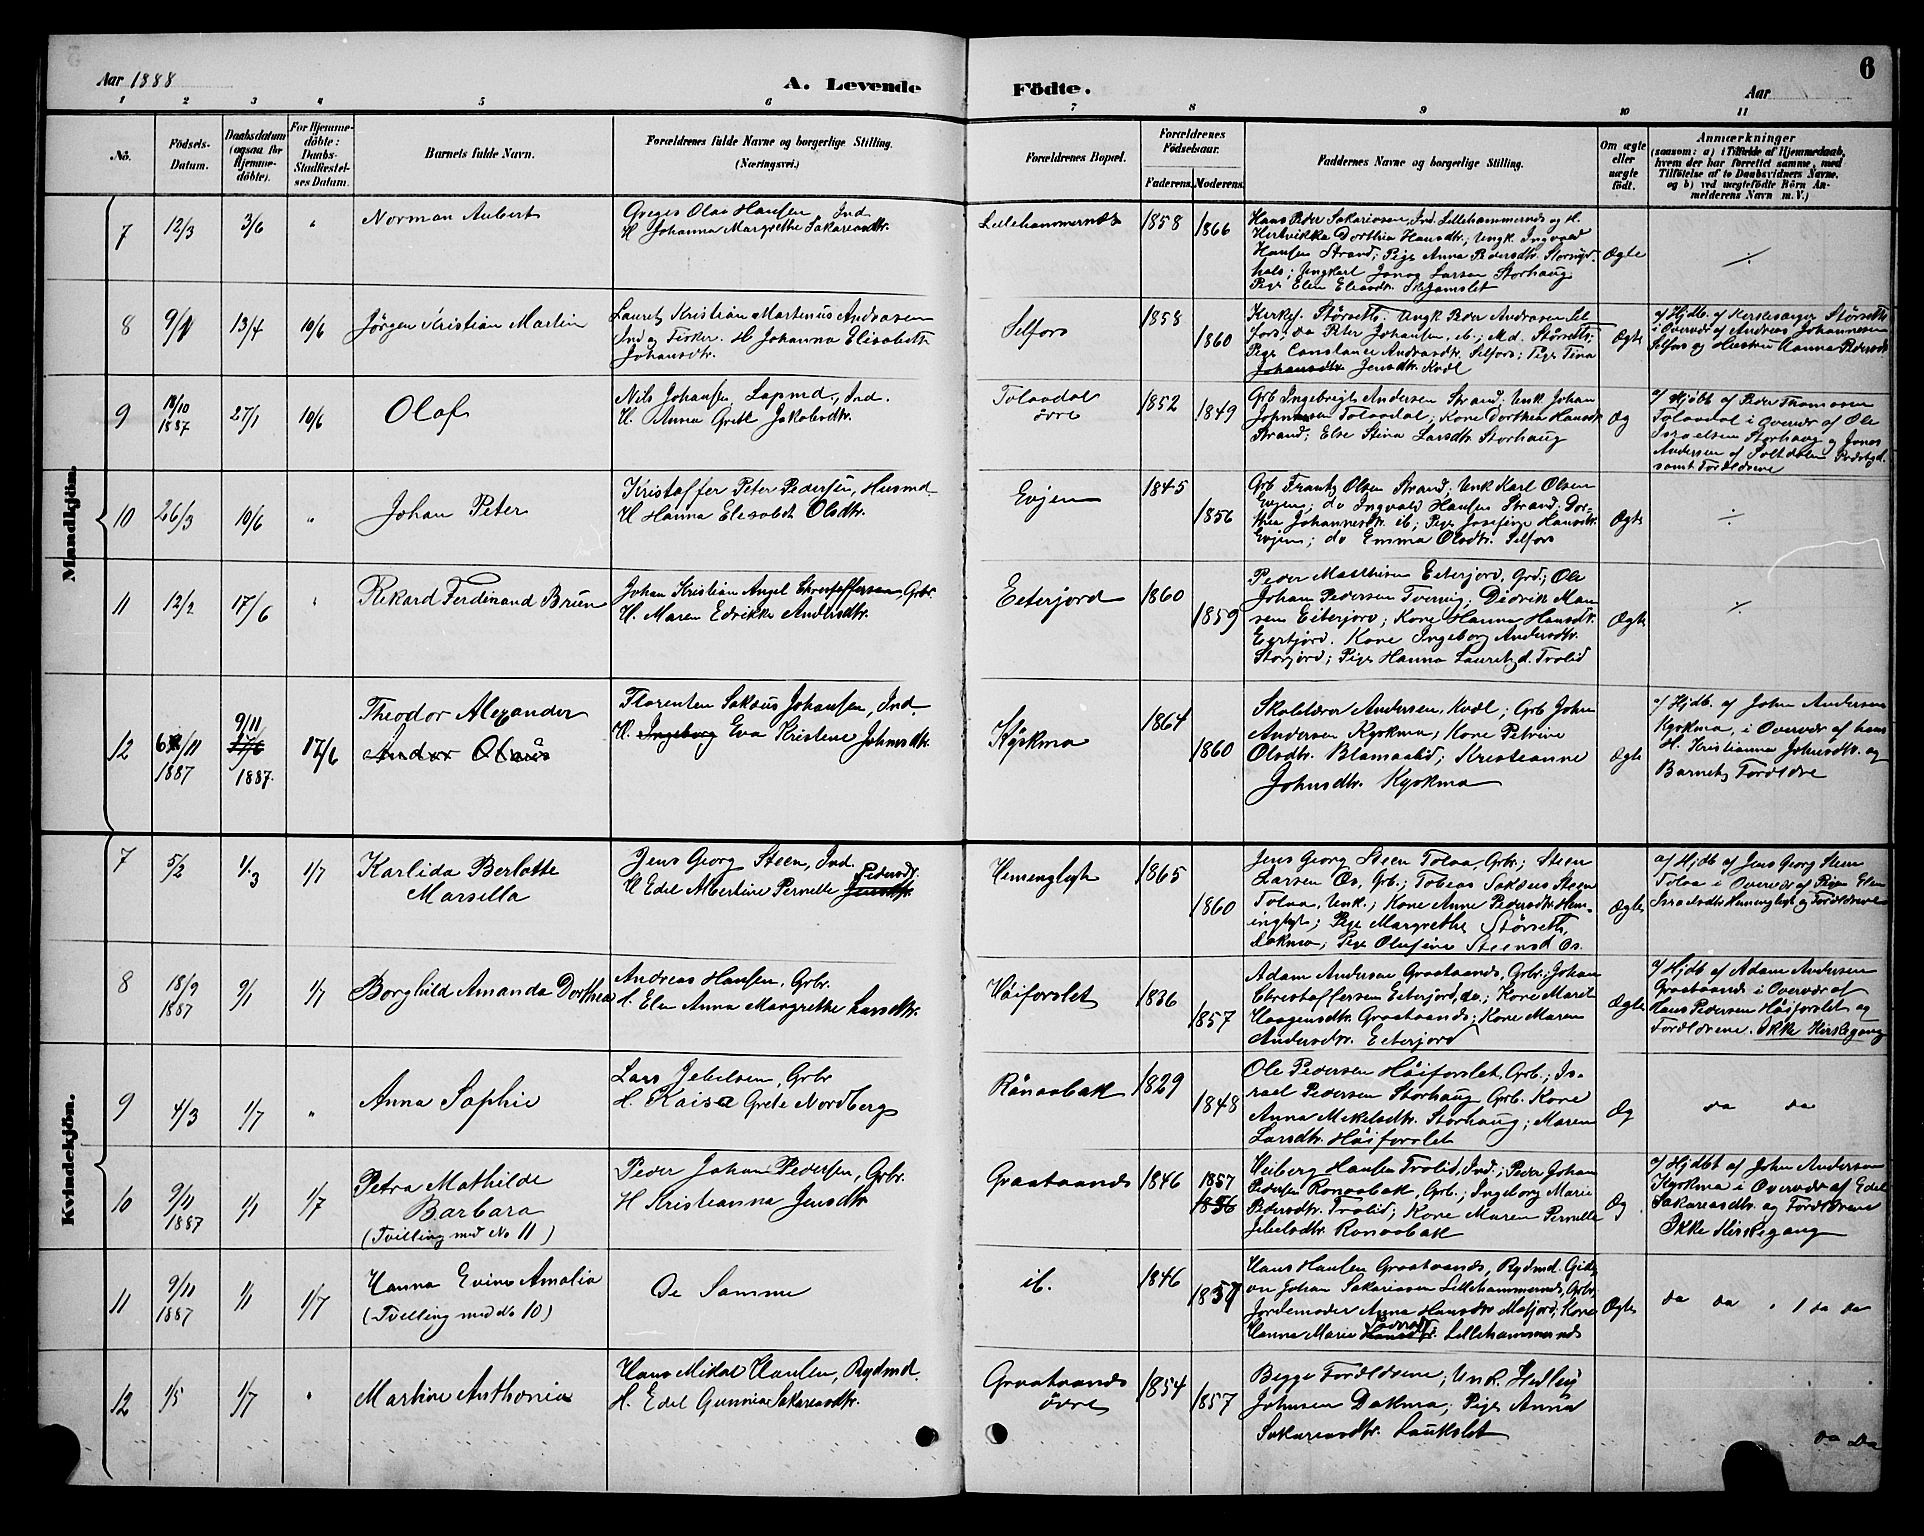 Aar 1888
A. Levende Födte.
Aar
6
1 2 3 4 5 6 7 8 9 10 11
No.
Födsels-Datum.
Daabsdatum (ogsaa for Hjemme-döbte).
For Hjemme-döbte: Daabs-Stadfæstel-ses Datum.
Barnets fulde Navn.
Forældrenes fulde Navne og borgerlige Stilling. (Næringsvei.)
Forældrenes Bopæl.
Forældrenes Födselsaar.
Faderens. Moderens.
Faddernes Navne og borgerlige Stilling.
Om ægte eller uægte födt.
Anmærkninger
(saasom: a) i Tilfælde af Hjemmedaab,
hvem der har forrettet samme, med
Tilföielse af to Daabsvidners Navne.
og b) ved uægtefödte Börn An-
melderens Navn m. V.)
Mandkjön.
7 12/3 3/6 "
Norman Aubert
Greges Olai Hansen Ind
H Johanna Margrethe Sakariasdtr.
Lillehammernæs
1858 1866
Hans Peder Sakariasen Ind. Lillehammernæs og H.
Hertvikka Dorthea Hansdtr; Ungk. Ingvald
Hansen Strand; Pige Anna Pedersdtr.
Ungkarl Jonas Larsen Storhaug
Pige Elen
Ægte
÷
8 13/4 10/6
Jörgen Kristian Martin
Lauretz Kristian Martenus Andrasen
Ind og Fisker. H Johanna Elisabeth
Johansdtr.
Selfors
1858 1860
Kirkes. Störseth; Ungk Peder Andrasen Sel
fors; do Peter Johansen, ib.; Md. Störseth;
Pige Constance Andrasdtr. Selfors; Pige Tina
Johansdtr Jensdtr. Kvæl
Ægte
a/ Hjdb. af Kirkesanger Störseth
i Overvær af Andreas Johannesen
Selfors og Hustru Hanna Pedersdtr
9 18/10 1887 27/1 10/6
Olaf
Nils Johansen, Lapmd., Ind.
H. Anna Grete Jakobsdtr.
Tolaadal övre
1852 1849
Grb Ingebrigt Andersen Strand; Unk Johan
Johnsen Tolaadal; Kone Dorthea Hansdtr
Strand; Else Stina Larsdtr Storhaug
Æg
a/ Hjdbt af Peder Thomassen
Tolaadal i Overvær af Ole
Israelsen Storhaug og Jonas
Andersen af Saltdalen
samt Forældrene
10 26/3 10/6 "
Johan Peter
Kristoffer Peter Pedersen, Husmd
H Hanna Elesabet Olsdtr.
Evjen
1845 1856
Grb Frantz Olsen Strand; Unk Karl Olsen
Evjen; do Ingvald Hansen Strand; Dor-
thea Johannesdtr. ib; Pige Josefine Hansdtr.
Evjen; do Emma Olsdtr. Selfors
Ægte
÷
11 12/2 17/6 "
Rikard Ferdinand Brun
Johan Kristian Angel Christoffersen Grbr.
H. Maren Edvikke Andersdtr.
Eeterjord
1860 1859
Peder Matthisen Eeterjord, Grd; Ole
Johan Pedersen Didrik Man
sen Eiterjord; Kone Hanna Hansdtr.
Kone Ingeborg Andersdtr.
Storjord; Pige Hanna Lauretzd. Trolid
Ægte
÷
12 6/11 1887 9/11 17/6 1887. 17/6
Theodor Alexander
Andor Olaus
Florenten Sakæus Johansen, Ind.
H. Ingeborg Eva Kristene Johnsdtr.
Kjökmo
1864 1860
Skolelærer Andersen, Kvæl; Grb John
Andersen Kjökmo; Kone Petrine
Olsdtr. Blamaalid; Kristeanne
Johnsdtr. Kjökmo
Ægte
a/ Hjdb. af John Andersen
Kjökmo, i Overvær af hans
H. Kristianna Johnsdtr. og
Barnets Forældre
Kvindekjön.
7 5/2 1/3 1/7
Karlida Berlotte
Marsella
Jens Georg Steen, Ind.
H Edel Albertine Pernelle Jensdtr. Pedersdtr.
Hemenglegt
1865 1860
Jens Georg Steen Tolaa, Grbr; Steen
Larsen Os, Grb.; Tobias Sakæus Steen
Tolaa, Unk.; Kone Anne Pedersdtr. Hem-
Pige Margrethe Störseth,
Dokmo, Pige Olufine Steensd Os.
Ægte
a/ Hjdb af Jens Georg Steen
Tolaa i Overvær af Pigen Elen
Israelsdtr Hemenglegt og Forældrene
8 18/9 1887 9/1 1/7
Borghild Amanda Dorthea
Andreas Hansen, Grbr.
H. Elen Anna Margrethe Larsdtr.
Höiforslet
1836 1857
Adam Andersen Graataands, Grbr.; Johan
Christoffersen Eeterjord, do.; Kone Maret
Haagensdtr. Graataands; Kone Maren
Andersdtr. Eeterjord
Ægte
a/ Hjdb af Adam Andersen
Graataands i Overvær af
Hans Pedersen Höiforslet og
Forældrene. Ikke Kirkegang
9 4/3 1/7 "
Anna Sophie
Lars Jebelsen, Grbr
H. Kaisa Grete Nordberg
Rönaabak
1829 1848
Ole Pedersen Höiforslet, Grb.; Is-
rael Pedersen Storhaug Grb. Kone
Anna Mekelsdtr. Storhaug; Maren
Larsdtr. Höiforslet
Æg
da da
10 9/11 1887 1/1 1/7
Petra Mathilde
Barbara
(Tvilling med No 11)
Peder Johan Pedersen, Grbr.
H Kristianna Jensdtr
Graataands
1846 1857 1856
Heiberg Hansen Trolid, Ind.; Peder Johan
Pedersen Ronaabak, Grb.; Ingeborg Marie
Pedersdtr. Trolid; Kone Maren Pernelle
Jebelsdtr Ronaabak
Æg
a/ Hjdbt af John Andersen
Kjökmo i Overvær af Edel
Sakariasdtr. og Forældrene
Ikke Kirkegang
11 9/11 1887 1/1 1/7
Hanna Evine Amalia
(Tvilling med No 10)
De Samme
ib.
1846 1857
Hans Hansen Graataands, Rydmd. Gide
on Johan Sakariasen Lillehammernæs, Grbr.
Jordemoder Anna Hansdtr Mofjord; Kone
Hanna Marie Hansdtr. Lillehammernæs
Ægte
da da " 1 da da
12 1/5 1/7 "
Martine Anthonie
Hans Mikal Hansen, Rydmd.
H. Edel Gunnia Sakariasdtr.
Graataands övre
1854 1857
Begge Forældrene; Unk.
Johnsen Dokmo; Pige Anna
Sakariasdtr. Laukslet
da da